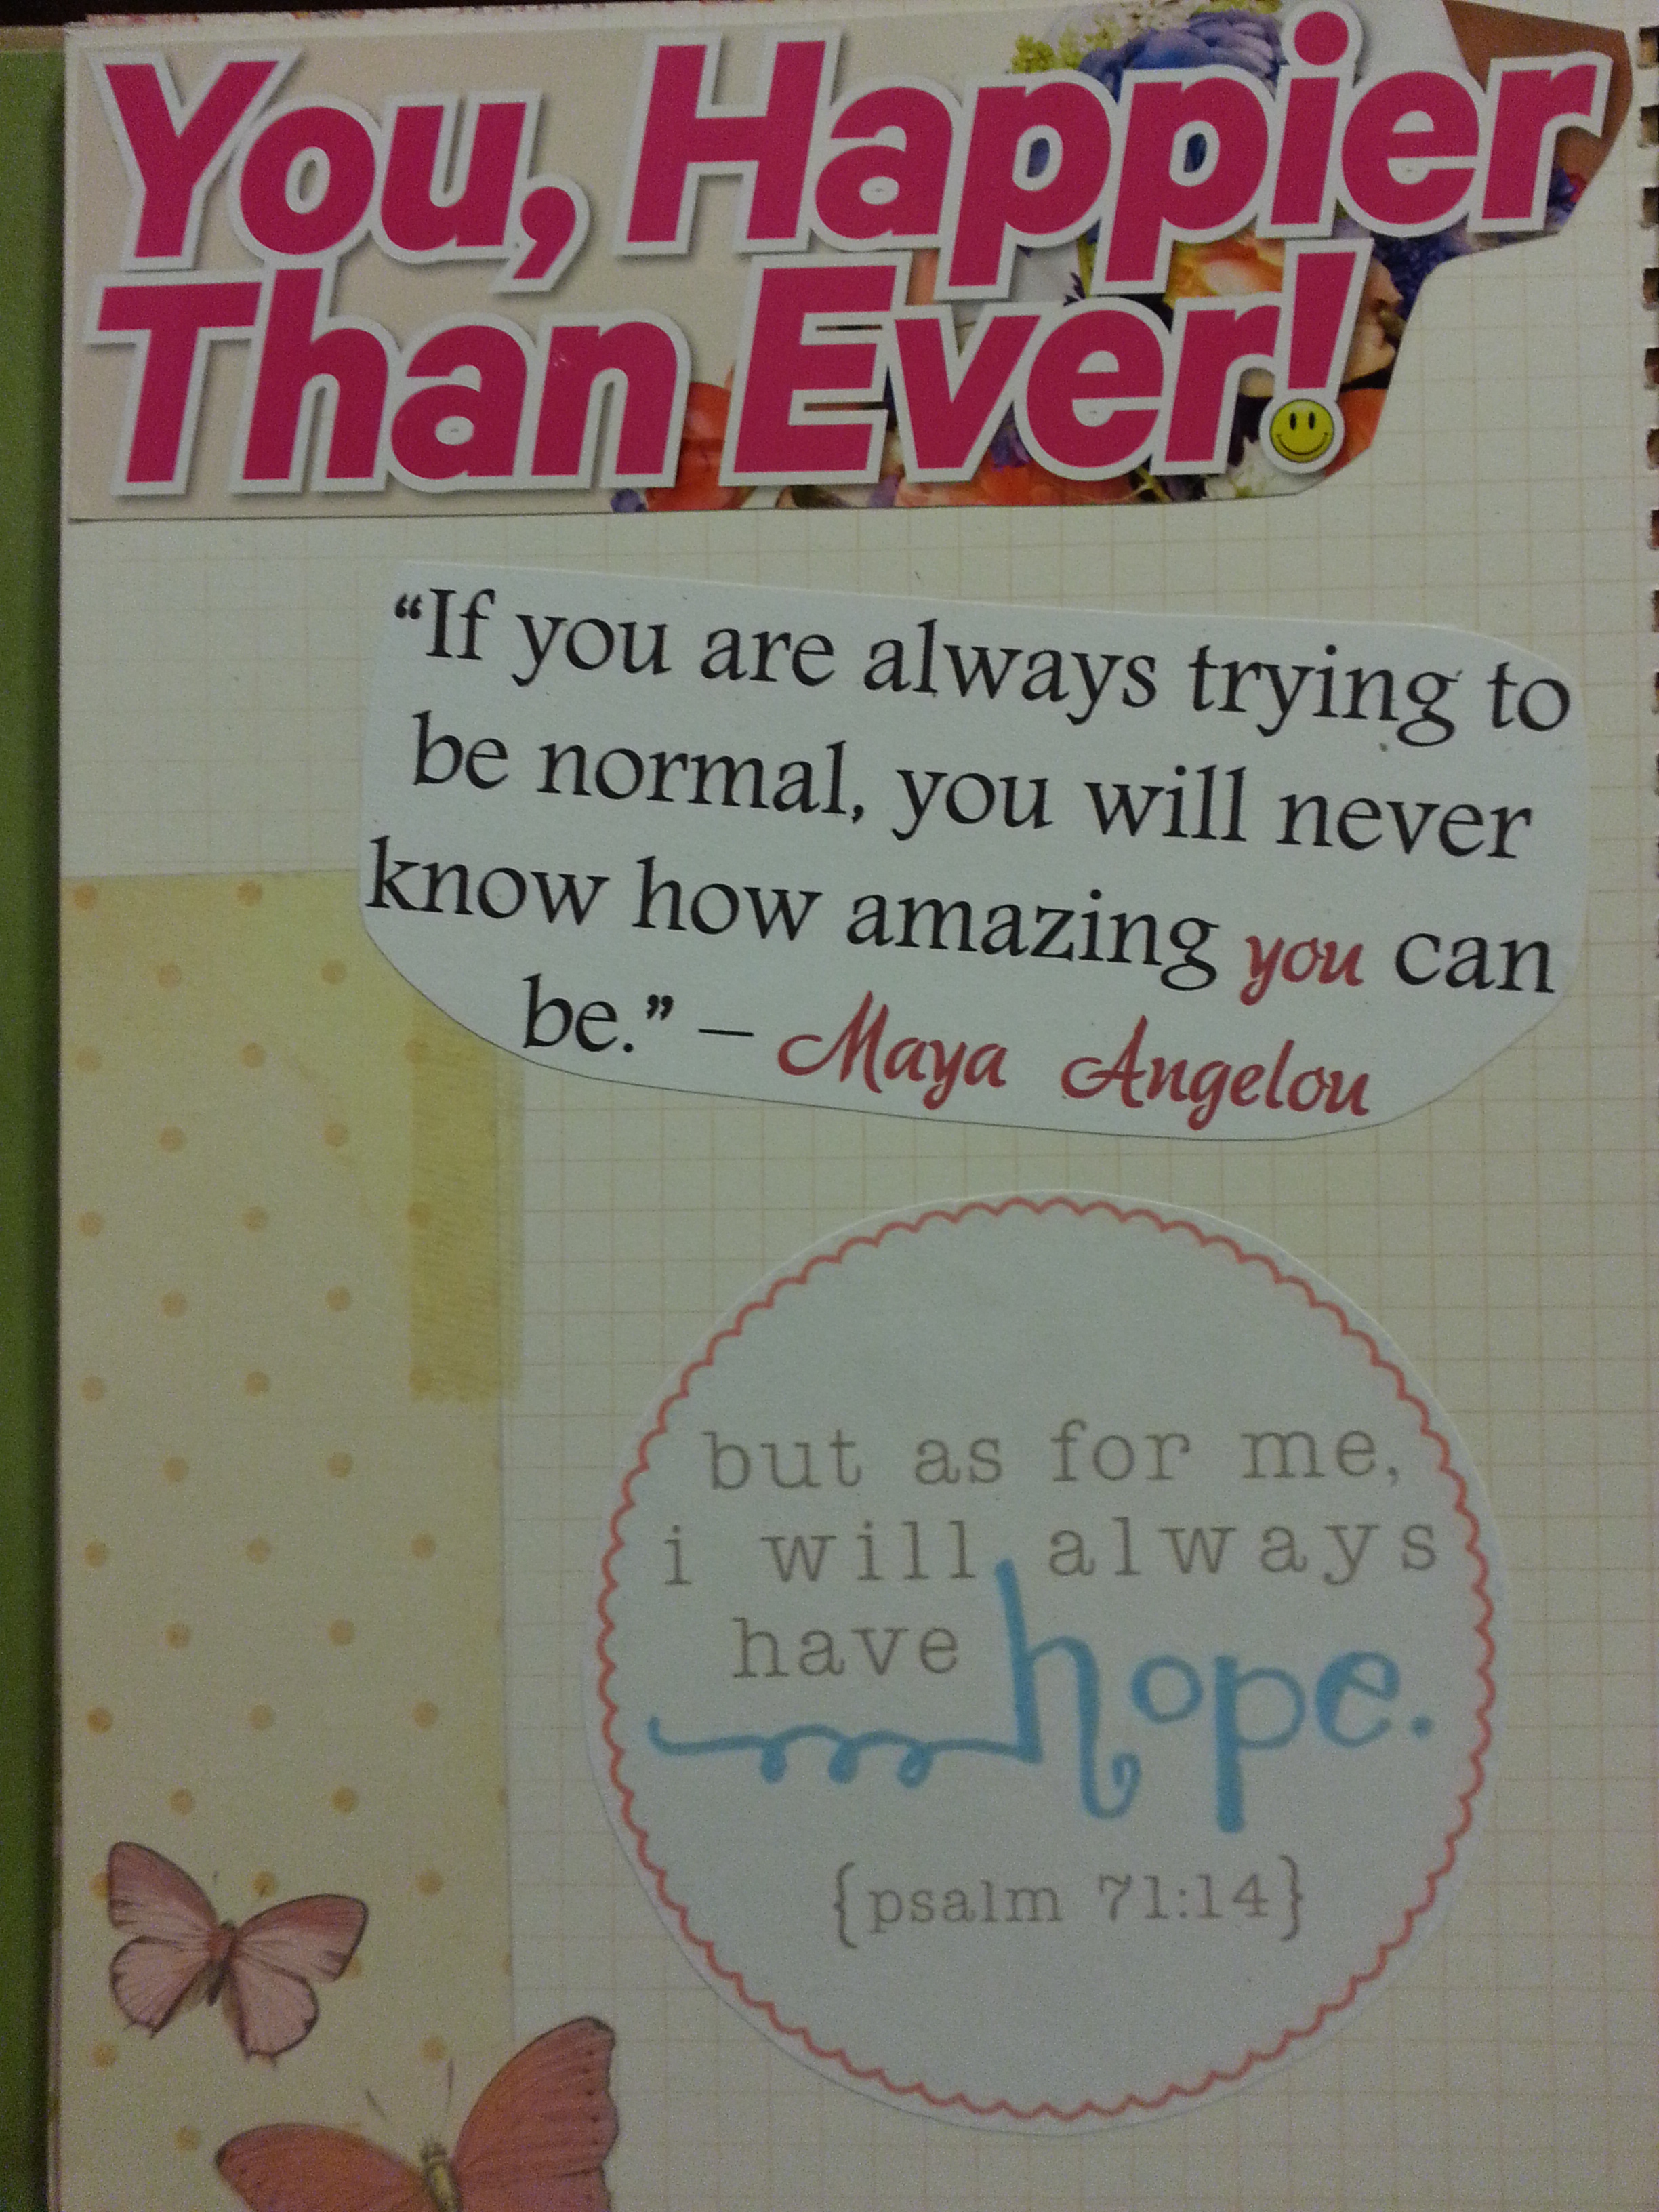 You, Happier
Than Ever!
“If you are always trying to
be normal, you will never
know how amazing you can
be.” – Maya Angelou
but as for me,
i will always
have hope.
{psalm 71:14}